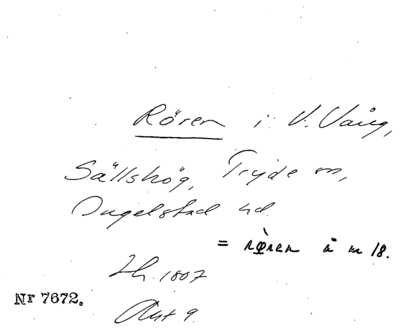 Rören i V. Vång,
Sällshög, Tryde sn,
Ingelstad hd
= rø̀ren å m 18.
Lh. 1807
Akt 9
Nr 7672.